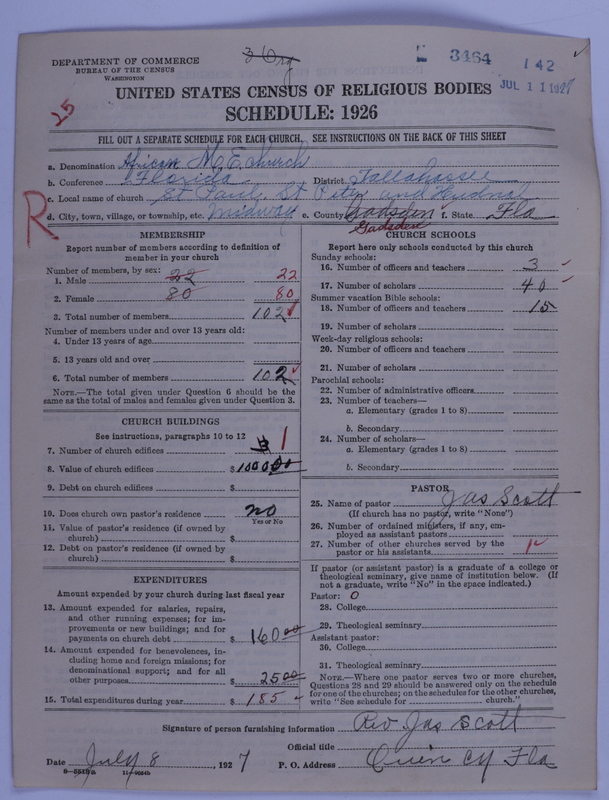 DEPARTMENT OF COMMERCE
BUREAU OF THE CENSUS
WASHINGTON
3 Org
3464
142
JUL 11 1927
UNITED STATES CENSUS OF RELIGIOUS BODIES
SCHEDULE: 1926
25
FILL OUT A SEPARATE SCHEDULE FOR EACH CHURCH. SEE INSTRUCTIONS ON THE BACK OF THIS SHEET
a. Denomination African M. E. Church
b. Conference Florida District Tallahassee
c. Local name of church St Paul, St
R
d. City, town, village, or township, etc. Midway e. County Gadsden f. State Fla
Gadsden
MEMBERSHIP
Report number of members according to definition of
member in your church
Number of members, by sex:
1. Male 22 22
2. Female 80 80
3. Total number of members 102
Number of members under and over 13 years old:
4. Under 13 years of age
5. 13 years old and over
6. Total number of members 102
NOTE.—The total given under Question 6 should be the
same as the total of males and females given under Question 3.
CHURCH BUILDINGS
See instructions, paragraphs 10 to 12
7. Number of church edifices 1
8. Value of church edifices $ 1000.00
9. Debt on church edifices $
10. Does church own pastor's residence no
Yes or No
11. Value of pastor's residence (if owned by
church) $
12. Debt on pastor's residence (if owned by
church) $
EXPENDITURES
Amount expended by your church during last fiscal year
13. Amount expended for salaries, repairs,
and other running expenses; for im-
provements or new buildings; and for
payments on church debt $ 160 00
14. Amount expended for benevolences, in-
cluding home and foreign missions; for
denominational support; and for all
other purposes $ 25 00
15. Total expenditures during year $ 185
CHURCH SCHOOLS
Report here only schools conducted by this church
Sunday schools:
16. Number of officers and teachers 3
17. Number of scholars 40
Summer vacation Bible schools:
18. Number of officers and teachers 15
19. Number of scholars
Week-day religious schools:
20. Number of officers and teachers
21. Number of scholars
Parochial schools:
22. Number of administrative officers
23. Number of teachers—
a. Elementary (grades 1 to 8)
b. Secondary
24. Number of scholars—
a. Elementary (grades 1 to 8)
b. Secondary
PASTOR
25. Name of pastor Jas Scott
(If church has no pastor, write "None")
26. Number of ordained ministers, if any, em-
ployed as assistant pastors
27. Number of other churches served by the
pastor or his assistants 1
If pastor (or assistant pastor) is a graduate of a college or
theological seminary, give name of institution below. (If
not a graduate, write "No" in the space indicated.)
Pastor: 0
28. College
29. Theological seminary
Assistant pastor:
30. College
31. Theological seminary
NOTE.—Where one pastor serves two or more churches,
Questions 28 and 29 should be answered only on the schedule
for one of the churches; on the schedules for the other churches,
write "See schedule for church."
Signature of person furnishing information Rev Jas Scott
Official title
Date July 8, 1927 P. O. Address Quincy Fla